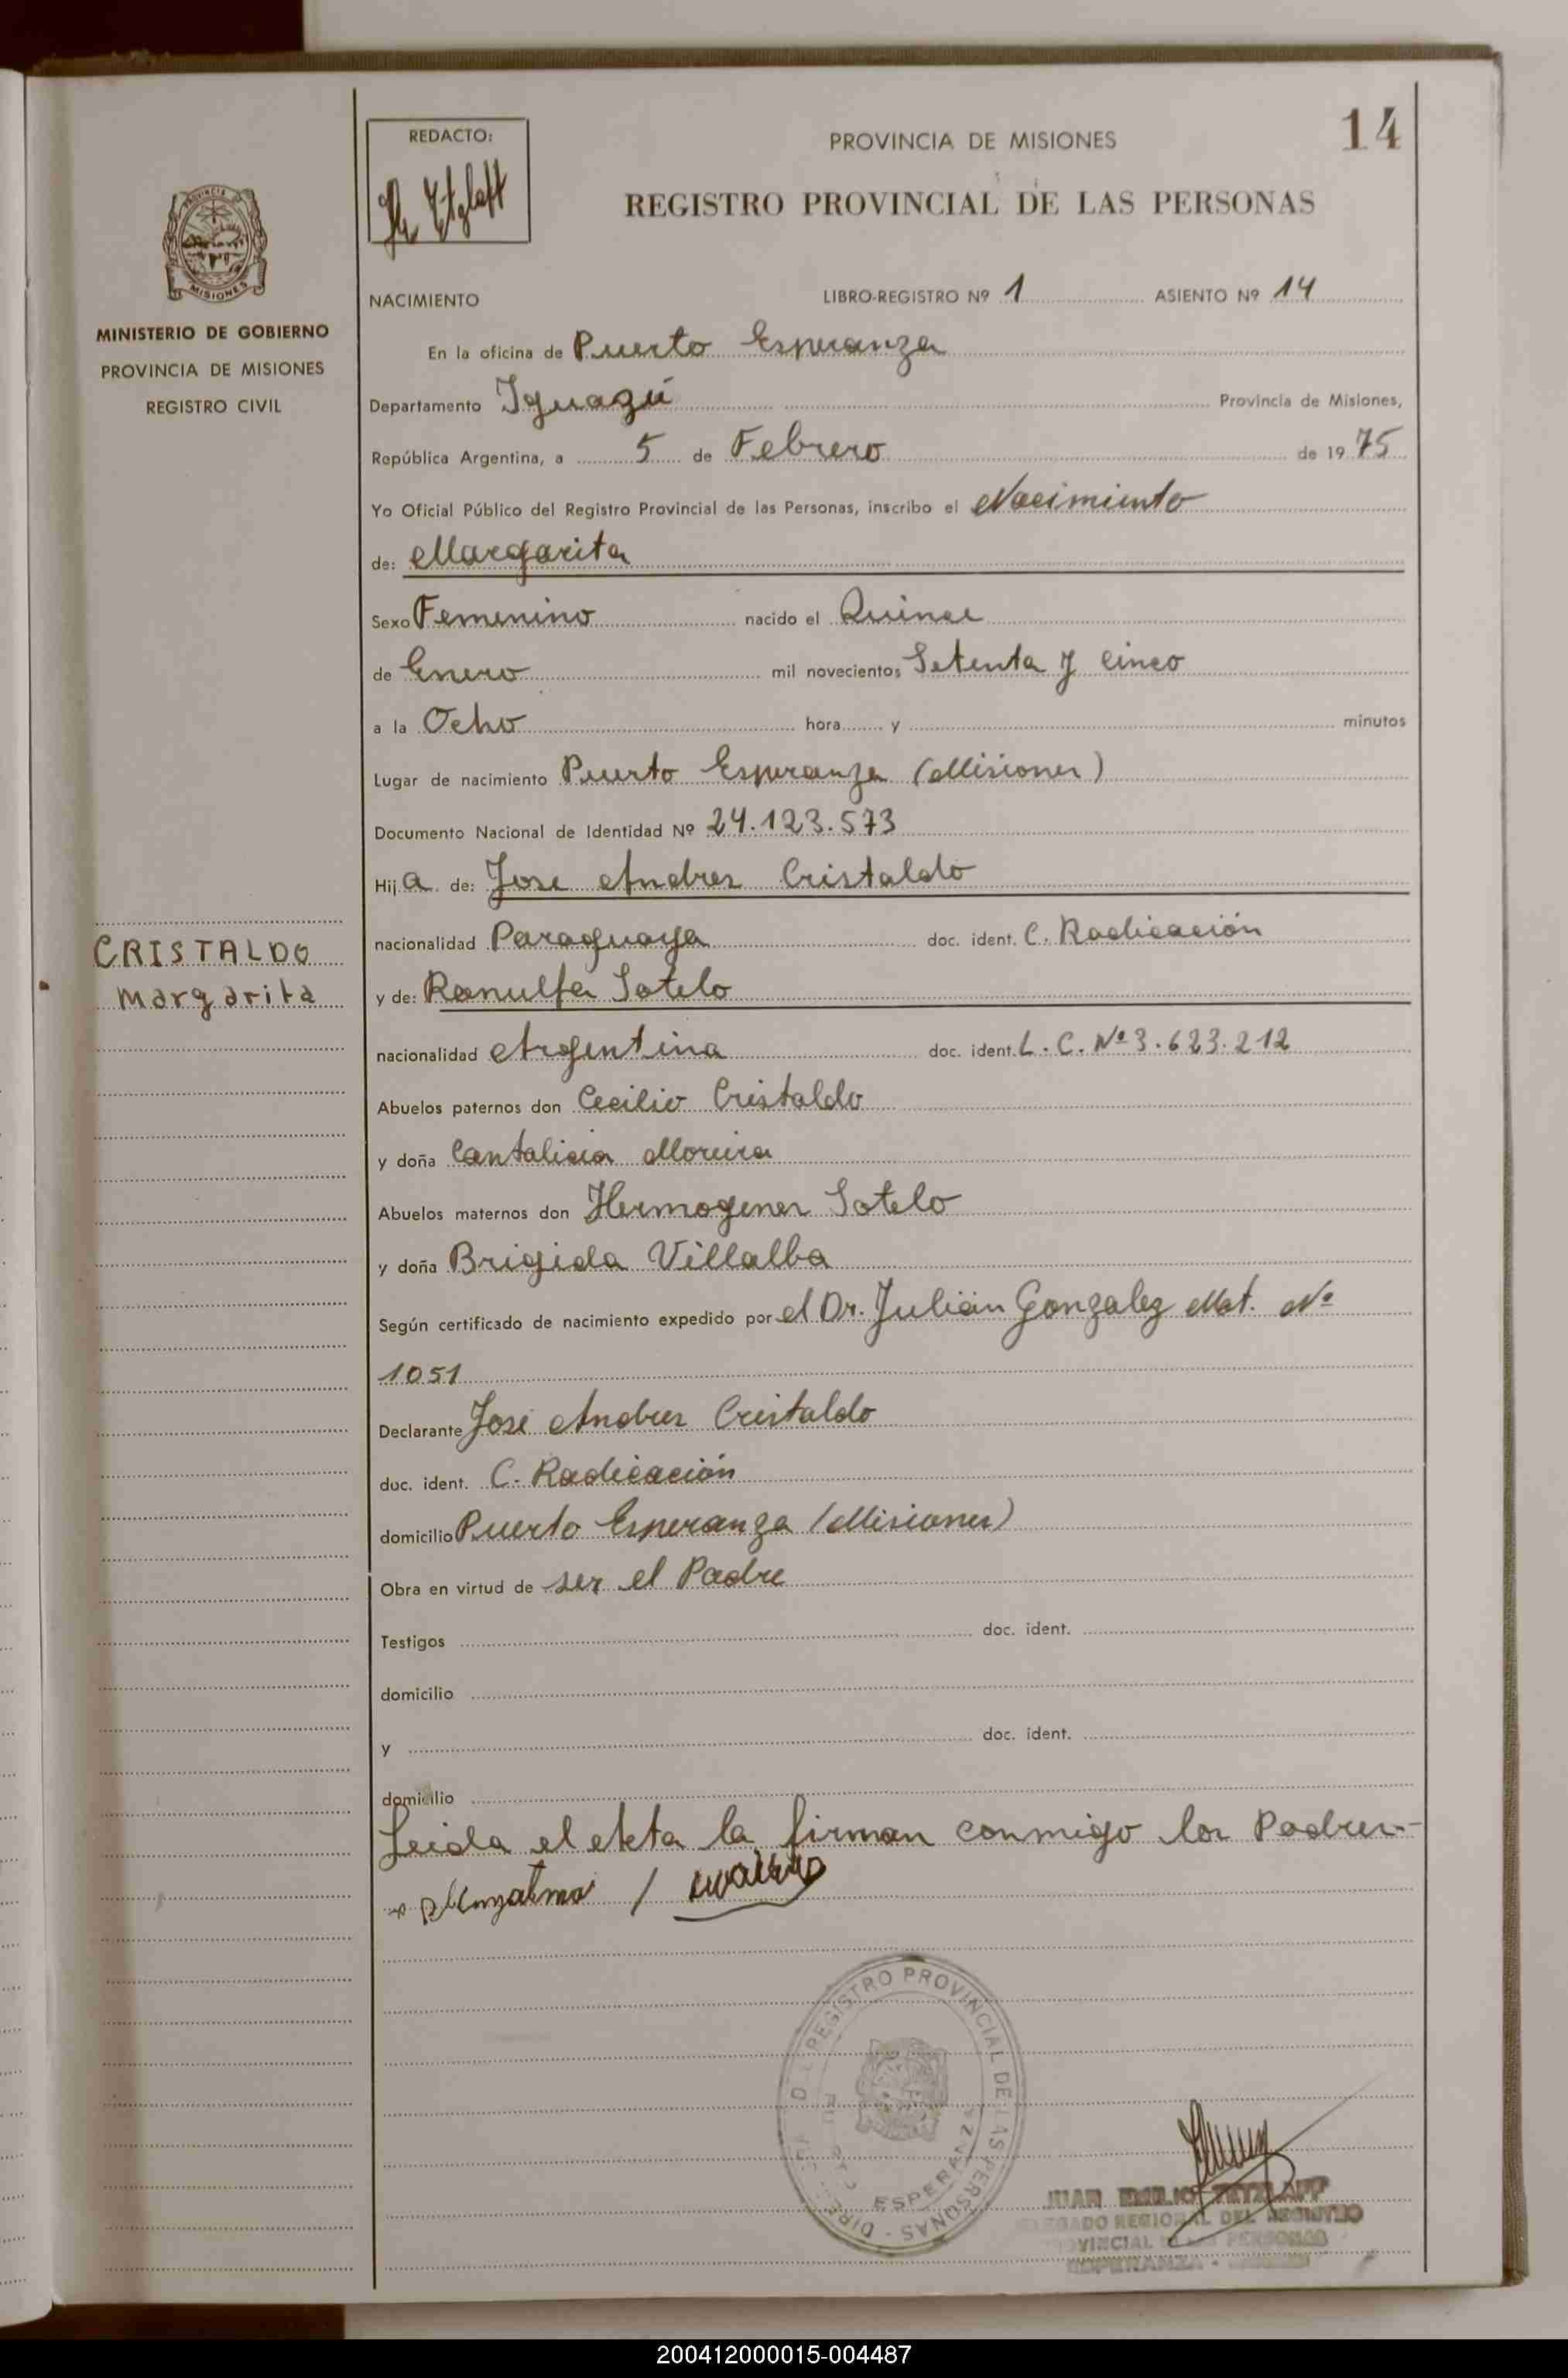 14
REDACTO:
PROVINCIA DE MISIONES
REGISTRO PROVINCIAL DE LAS PERSONAS
PROVINCIA
MISIONES
MINISTERIO DE GOBIERNO
PROVINCIA DE MISIONES
REGISTRO CIVIL
NACIMIENTO LIBRO-REGISTRO Nº 1 ASIENTO Nº 14
En la oficina de Puerto Esperanza
Departamento Iguazú Provincia de Misiones,
República Argentina, a 5 de Febrero de 1975
Yo Oficial Público del Registro Provincial de las Personas, inscribo el Nacimiento
de: Margarita
Sexo Femenino nacido el Quince
de Enero mil novecientos Setenta y Cinco
a la Ocho hora y minutos
Lugar de nacimiento Puerto Esperanza (Misiones)
Documento Nacional de Identidad Nº 24.123.573
Hija de: Jose Andres Cristaldo
CRISTALDO
Margarita
nacionalidad Paraguaya doc. ident. C. Radicación
y de: Ranulfa Sotelo
nacionalidad Argentina doc. ident. L.C. Nº 3.623.212
Abuelos paternos don Cecilio Cristaldo
y doña Cantalicia Moreira
Abuelos maternos don Hermogenes Sotelo
y doña Brigida Villalba
Según certificado de nacimiento expedido por el Dr. Julián Gonzalez Mat. Nº
1051
Declarante José Andres Cristaldo
duc. ident. C. Radicación
domicilio Puerto Esperanza (Misiones)
Obra en virtud de ser el Padre
Testigos doc. ident.
domicilio
y doc. ident.
domicilio
Leida el Acta la firman conmigo los Padres--
REGISTRO PROVINCIAL DE LAS PERSONAS
ESPERANZA
JUAN EMILIO TETZLAFF
DELEGADO REGIONAL DEL REGISTRO
PROVINCIAL DE LAS PERSONAS
ESPERANZA -
200412000015-004487